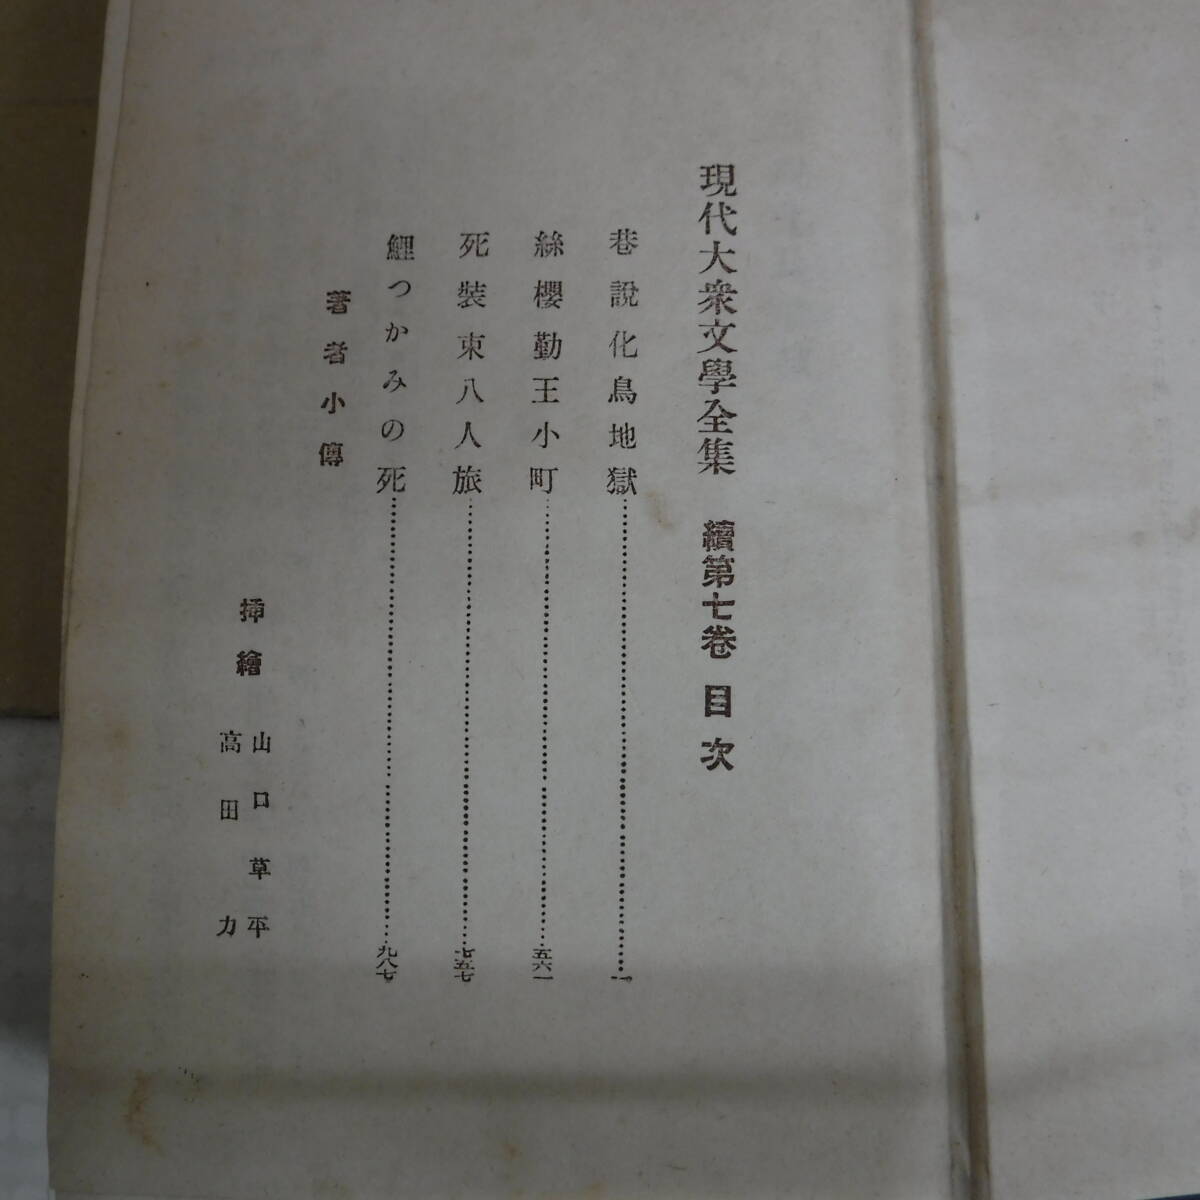 現代大衆文學全集 續第七卷 目次
巷說化鳥地獄……一
絲櫻勤王小町……五六一
死裝束八人旅……七五七
鯉つかみの死……九八七
著者小傳
揷繪 山口草平
高田力